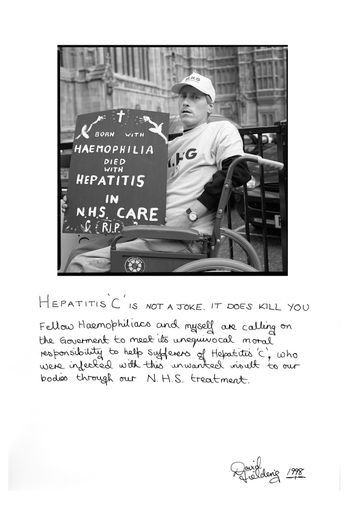 HHG
BORN WITH
HAEMOPHILIA
DIED
WITH
HEPATITIS
IN
N.H.S. CARE
R.I.P.
HEPATITIS 'C' IS NOT A JOKE. IT DOES KILL YOU
Fellow Haemophiliacs and myself are calling on
the Goverment to meet its unequivocal moral
responsibility to help Sufferers of Hepatitis 'C', who
were infected with this unwanted insult to our
bodies through our N.H.S. treatment.
David
Fielding 1998